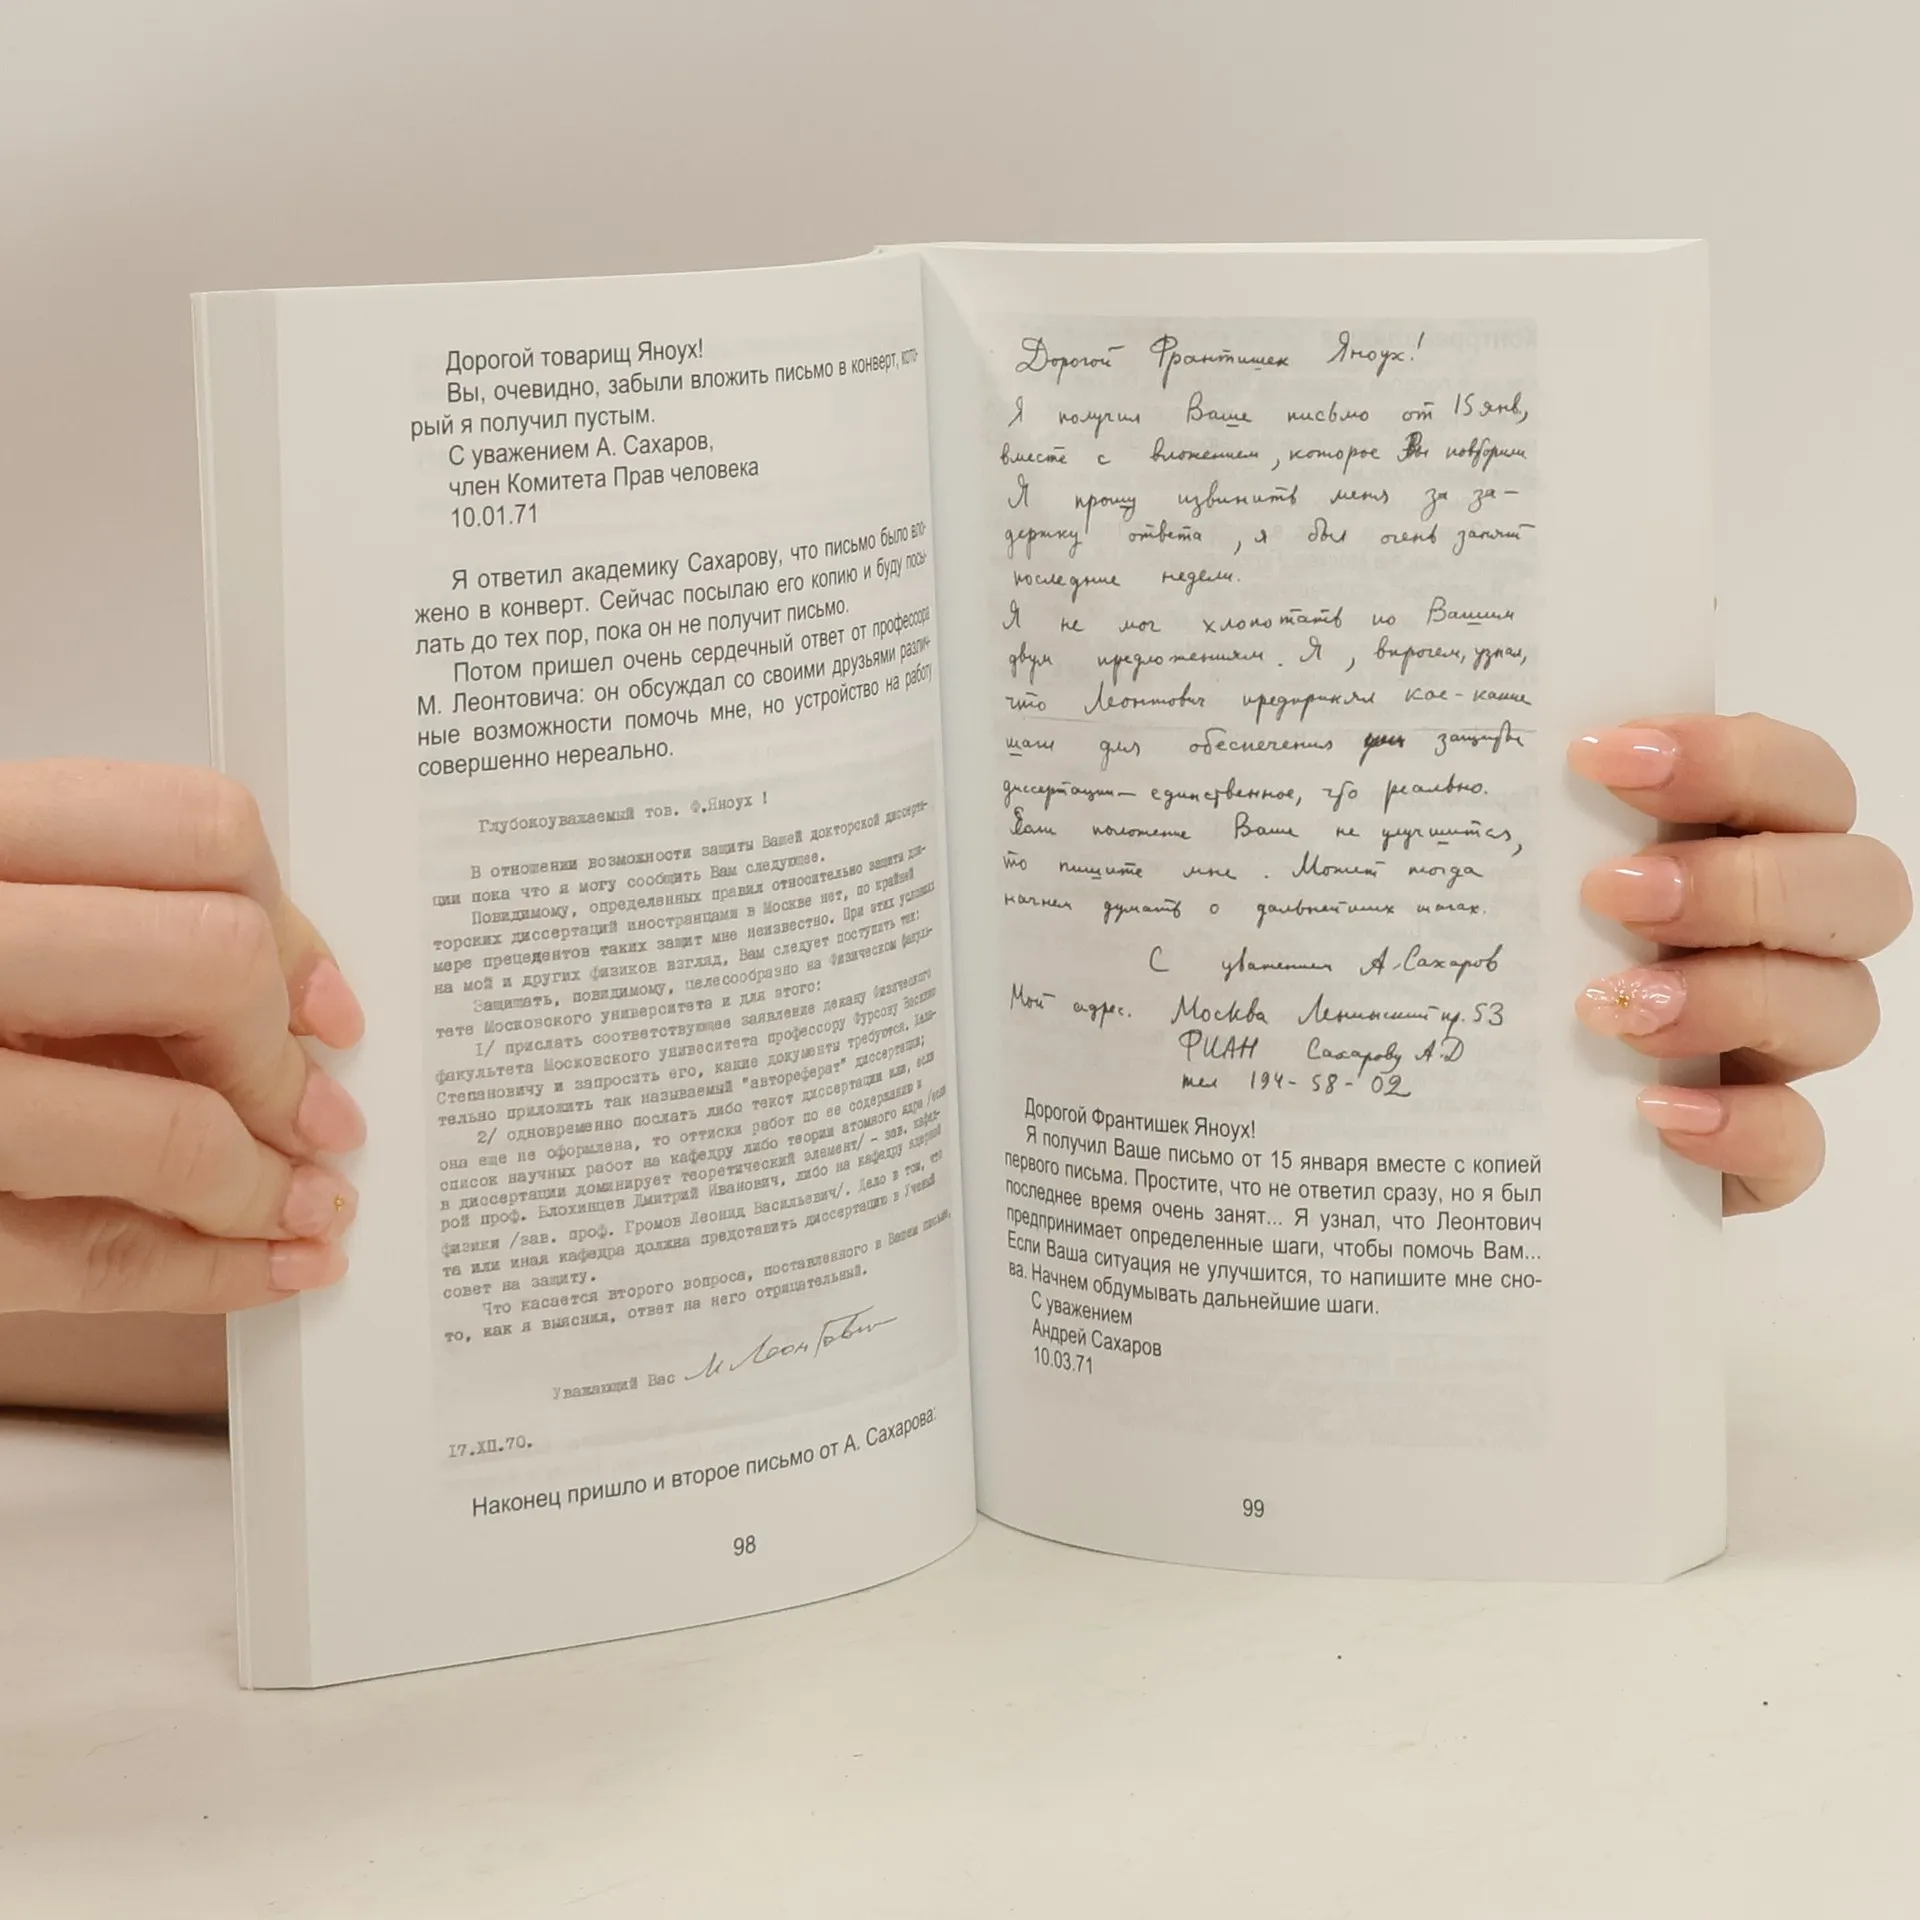 Дорогой товарищ Яноух!
Вы, очевидно, забыли вложить письмо в конверт, кото-
рый я получил пустым.
С уважением А. Сахаров,
член Комитета Прав человека
10.01.71
Я ответил академику Сахарову, что письмо было вло-
жено в конверт. Сейчас посылаю его копию и буду посы-
лать до тех пор, пока он не получит письмо.
Потом пришел очень сердечный ответ от профессора
М. Леонтовича: он обсуждал со своими друзьями различ-
ные возможности помочь мне, но устройство на работу
совершенно нереально.
Глубокоуважаемый тов. Ф.Яноух !
В отношении возможности защиты Вашей докторской диссерта-
ции пока что я могу сообщить Вам следующее.
Повидимому, определенных правил относительно защиты док-
торских диссертаций иностранцами в Москве нет, по крайней
мере прецедентов таких защит мне неизвестно. При этих условиях
на мой и других физиков взгляд, Вам следует поступить так:
Защищать, повидимому, целесообразно на Физическом факуль-
тете Московского университета и для этого:
1/ прислать соответствующее заявление декану Физического
факультета Московского университета профессору Фурсову Василию
Степановичу и запросить его, какие документы требуются. Жела-
тельно приложить так называемый "автореферат" диссертации;
2/ одновременно послать либо текст диссертации или, если
она еще не оформлена, то оттиски работ по ее содержанию и
список научных работ на кафедру либо теории атомного ядра /если
в диссертации доминирует теоретический элемент/ – зав. кафед-
рой проф. Блохинцев Дмитрий Иванович, либо на кафедру ядерной
физики /зав. проф. Громов Леонид Васильевич/. Дело в том, что
та или иная кафедра должна представить диссертацию в Ученый
совет на защиту.
Что касается второго вопроса, поставленного в Вашем письме,
то, как я выяснил, ответ на него отрицательный.
Уважающий Вас М Леонтович
17.XII.70.
Наконец пришло и второе письмо от А. Сахарова:
98
Дорогой Франтишек Яноух!
Я получил Ваше письмо от 15 янв,
вместе с вложением, которое Вы повторили
Я прошу извинить меня за за-
держку ответа, я был очень занят
последние недели.
Я не мог хлопотать по Вашим
двум предложениям. Я, впрочем, узнал,
что Леонтович предпринял кое-какие
шаги для обеспечения защиты
диссертации – единственное, что реально.
Если положение Ваше не улучшится,
то пишите мне. Может тогда
начнем думать о дальнейших шагах.
С уважением А.Сахаров
Мой адрес. Москва Ленинский пр. 53
ФИАН Сахарову А.Д
тел 194-58-02
Дорогой Франтишек Яноух!
Я получил Ваше письмо от 15 января вместе с копией
первого письма. Простите, что не ответил сразу, но я был
последнее время очень занят... Я узнал, что Леонтович
предпринимает определенные шаги, чтобы помочь Вам...
Если Ваша ситуация не улучшится, то напишите мне сно-
ва. Начнем обдумывать дальнейшие шаги.
С уважением
Андрей Сахаров
10.03.71
99